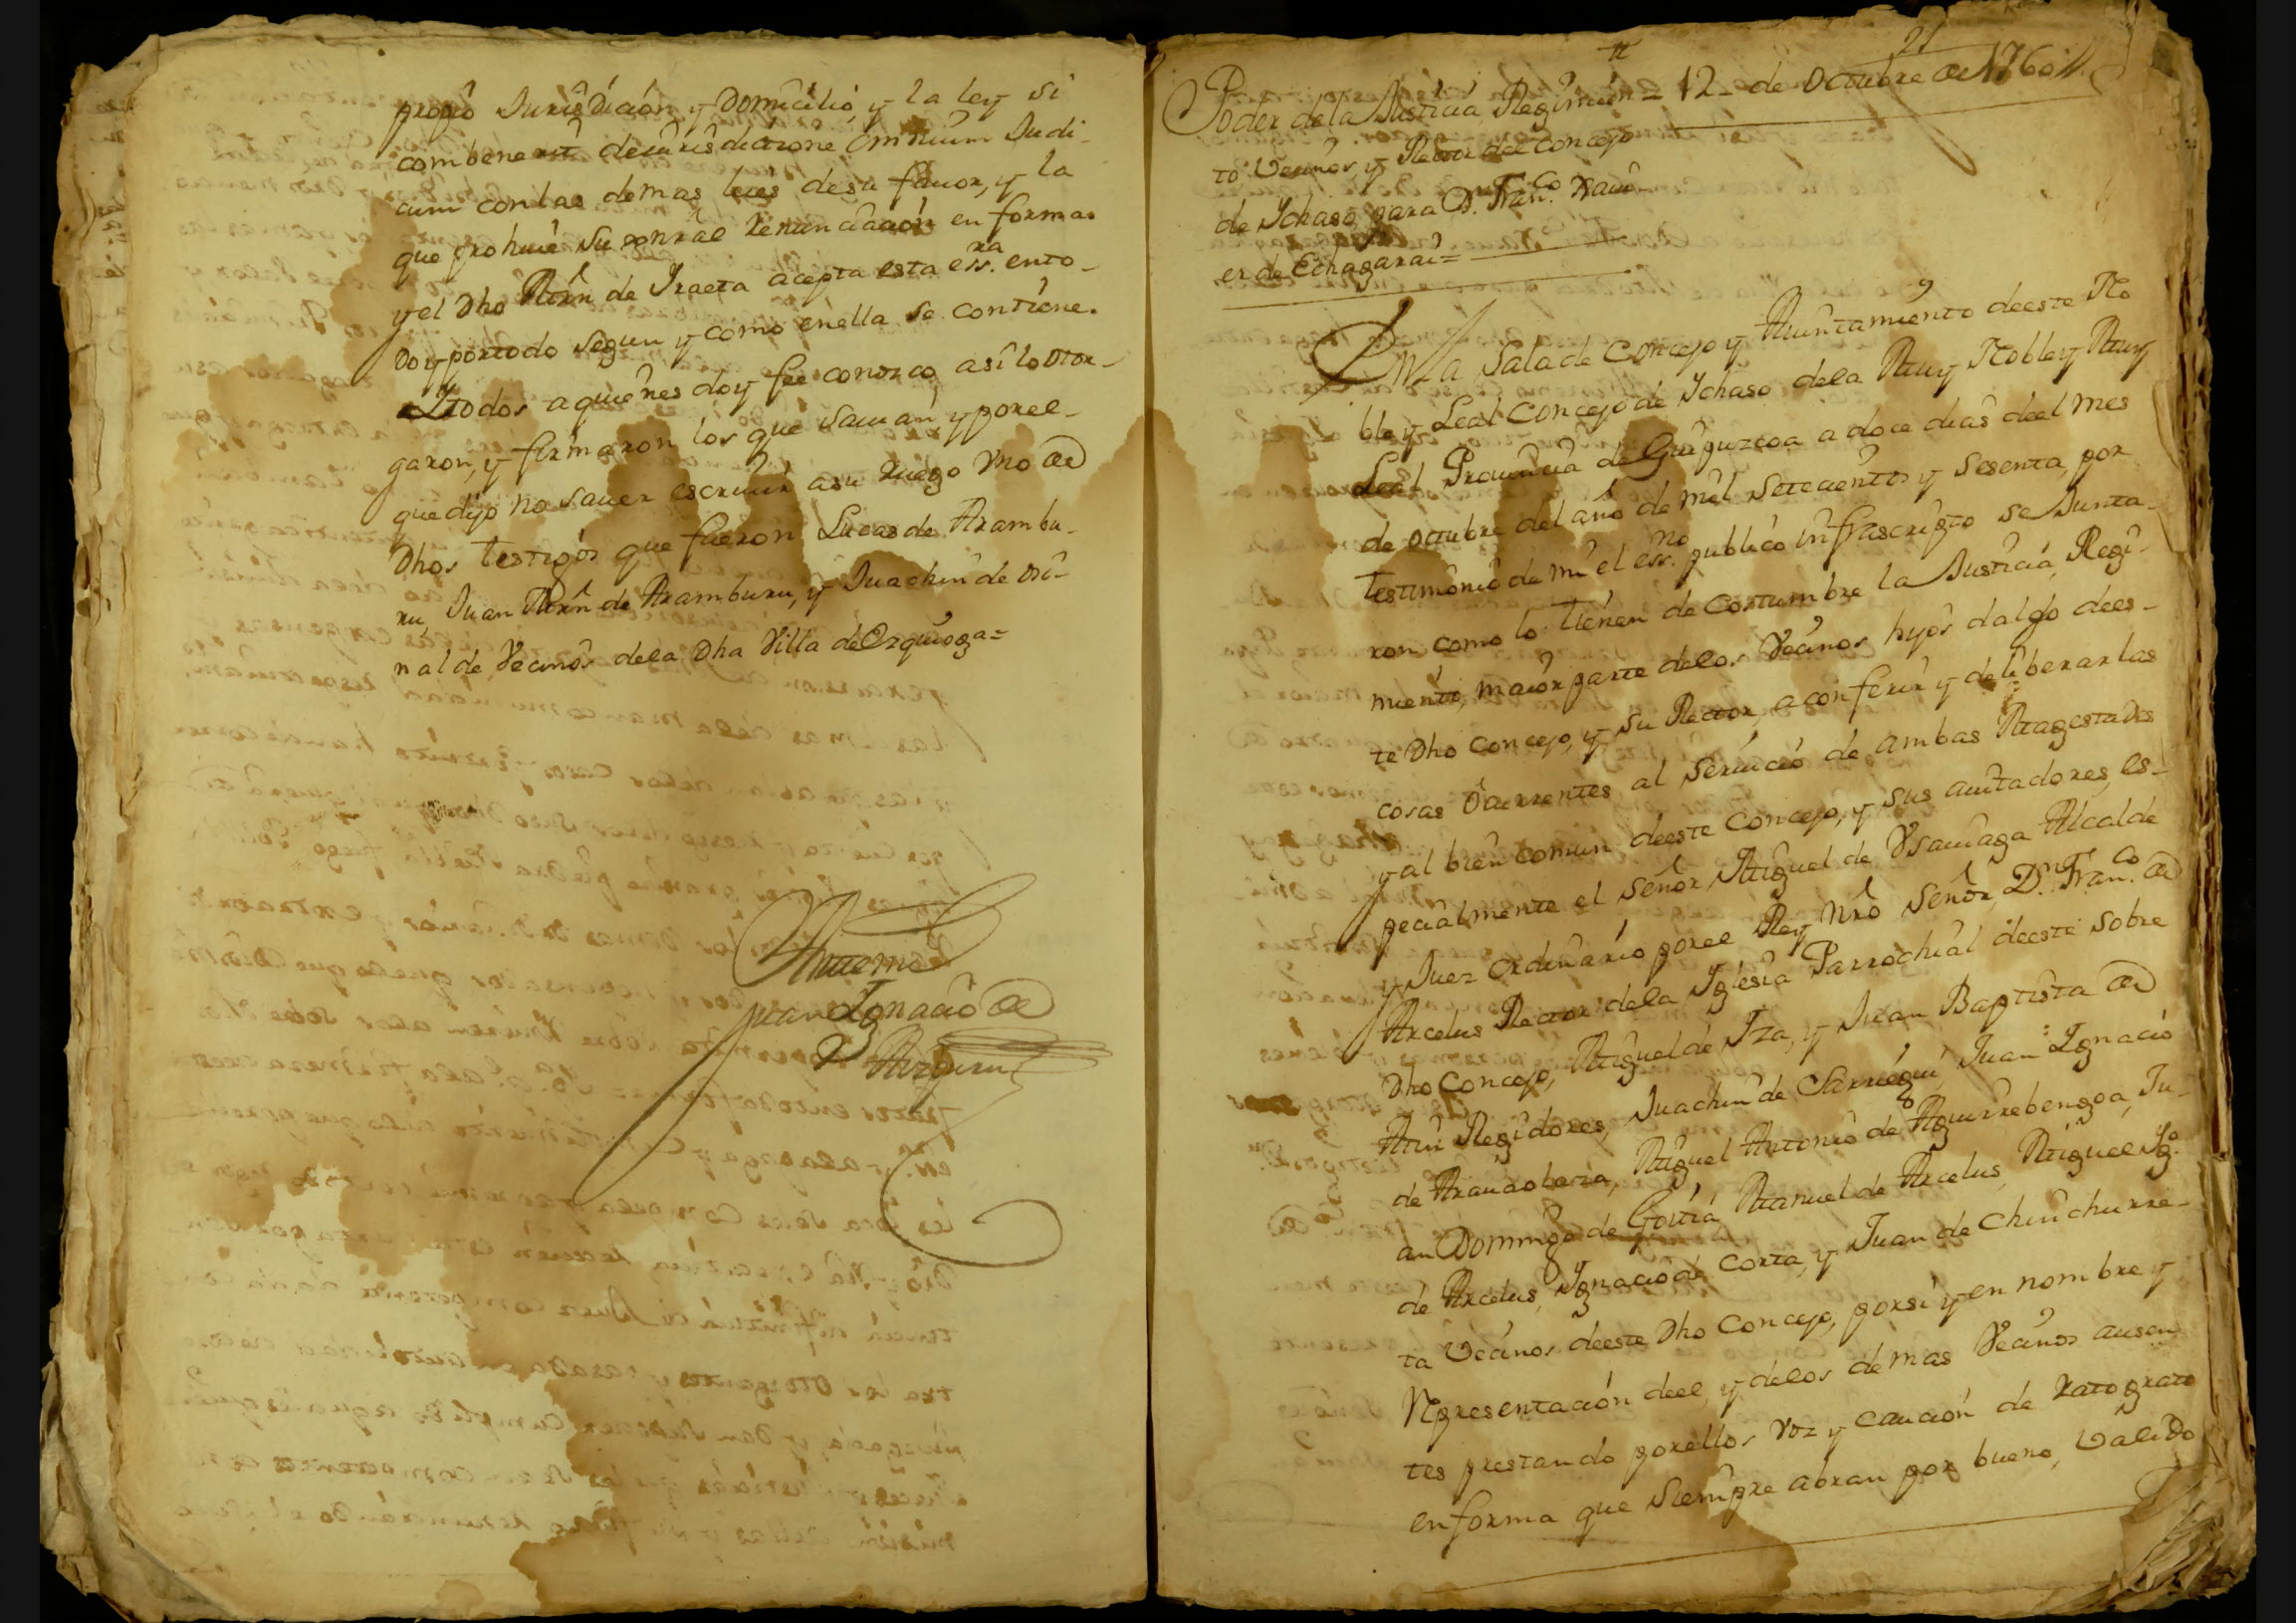 propio Jurisdición y Domicilio, y la ley si
combenerit dejurisdictione omnium Judi-
cum con las demas leies de su fauor, y la
que prohiue su genrãl Renunciación en forma.
y el Dho Mrñ de Iraeta acepta esta essra. ento-
do y portodo segun y como enella se contiene.
Y todos aquienes doy fee conozco, así lo otor-
garon, y firmaron los que sauian, y porel-
que dijo no sauer escriuir asu ruego vno de
Dhos testigos que fueron Lucas de Arambu-
ru, Juan Mrñ de Aramburu, y Juachin de Ori-
nalde, Vecinos dela Dha Villa de Ezquioga=
Antemi
Juan Ignacio de
Aizpuru
21
Poder de la Justicia Regimien- 12- de Octubre de 1760//.
to Vecinos, y Rector del Concejo
de Ichaso, para Dn. Franco. Xaui-
er de Echagarai=
En la Sala de Concejo y Aiuntamiento deeste No
ble y Leal Concejo de Ichaso dela Muy Noble y Muy
Leal Prouincia de Guipuzcoa a doce dias deel mes
de octubre del año de mil setecientos y sesenta, por
testimonio de mi el essno. publico infrascripto se Junta-
ron como lo tienen de costumbre la Justicia, Regi-
miento, maior parte delos Vecinos hijos dalgo dees-
te Dho Concejo, y su Rector, a conferir y deliberar las
cosas ocurrentes al seruicio de ambas Magestades
y al bien comun deeste Concejo, y sus auitadores, es-
pecialmente el señor Miguel de Vsauiaga Alcalde
y Juez ordinario porel Rey Nrõ Señor, Dn. Franco. de
Arcelus Rector dela Yglesia Parrochial deeste sobre
Dho Concejo, Miguel de Iza, y Juan Baptista de
Regidores, Juachin de Sarriegui, Juan Ignacio
de Arandolaza, Miguel Antonio de Aguirrebengoa, Ju-
an Domingo de Goitia, Manuel de Arcelus, Miguel Igo.
de Arcelus, Ygnacio de Corta, y Juan de Chinchurre-
ta Vecinos deeste Dho Concejo, porsi y en nombre y
Representación deel, y delos demas Vecinos ausen
tes prestando porellos voz y caución de rato grato
enforma que siempre abran por bueno, Valido